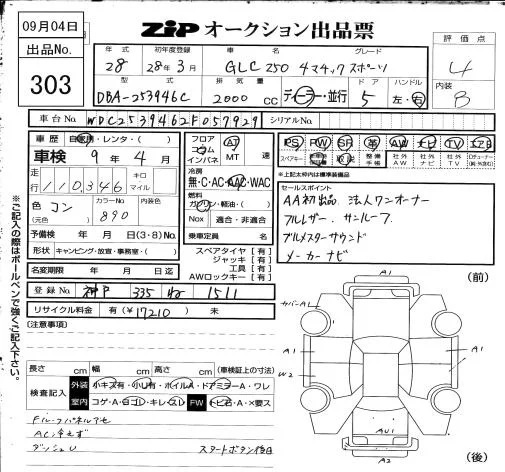 09月04日
出品No.
303
ZIP オークション出品票
評価点
4
内装
B
年式 初年度登録 車名 グレード
28 28年3月 GLC 250 4マチック スポーツ
型式 排気量 ドア ハンドル
DBA-253946C 2000 CC ディーラー・並行 5 左・右
車台No. WDC2539462F057929 シリアルNo.
車歴 自家用・レンタ・( )
車検 9年 4月
走行 110,346 キロ マイル
色 コン (元色) カラーNo. 890 内装色
予備検 年 月 日(3・8)No.
形状 キャンピング・放送・事務室・( )
名変期限 年 月 日迄
フロア コラム インパネ AT MT 速
冷房 無・C・AC・AAC・WAC
燃料 ガソリン・軽油・( )
Nox 適合・非適合
乗車定員 名
スペアタイヤ [有]
ジャッキ [有]
工具 [有]
AWロックキー [有]
PS PW SR 革 AW ナビ TV エアB
スペアキー 整備手帳 社外AW 社外ナビ 社外TV
※上記太枠内は標準装備品
セールスポイント
AA初出品 法人ワンオーナー
フルレザー サンルーフ
ブルメスターサウンド
メーカーナビ
登録No. 神戸 335 ね 1511
リサイクル料金 有(¥17210) 未
(注意事項)
※ご記入の際はボールペンで強くご記入下さい。
長さ cm 幅 cm 高さ cm (車検証上の寸法)
検査記入 外装 小キズ有・小凹有・ホイルA・ドアミラーA・ワレ
室内 コゲ・A・凹コレ・キレ・スレ FW トビ石・A・×要ス
Fルーフパネルアセ
AC冷えず
ダッシュU スタートボタン修A
(前)
A1
カバーAL
A1
A1
W2
AU1
A2
(後)